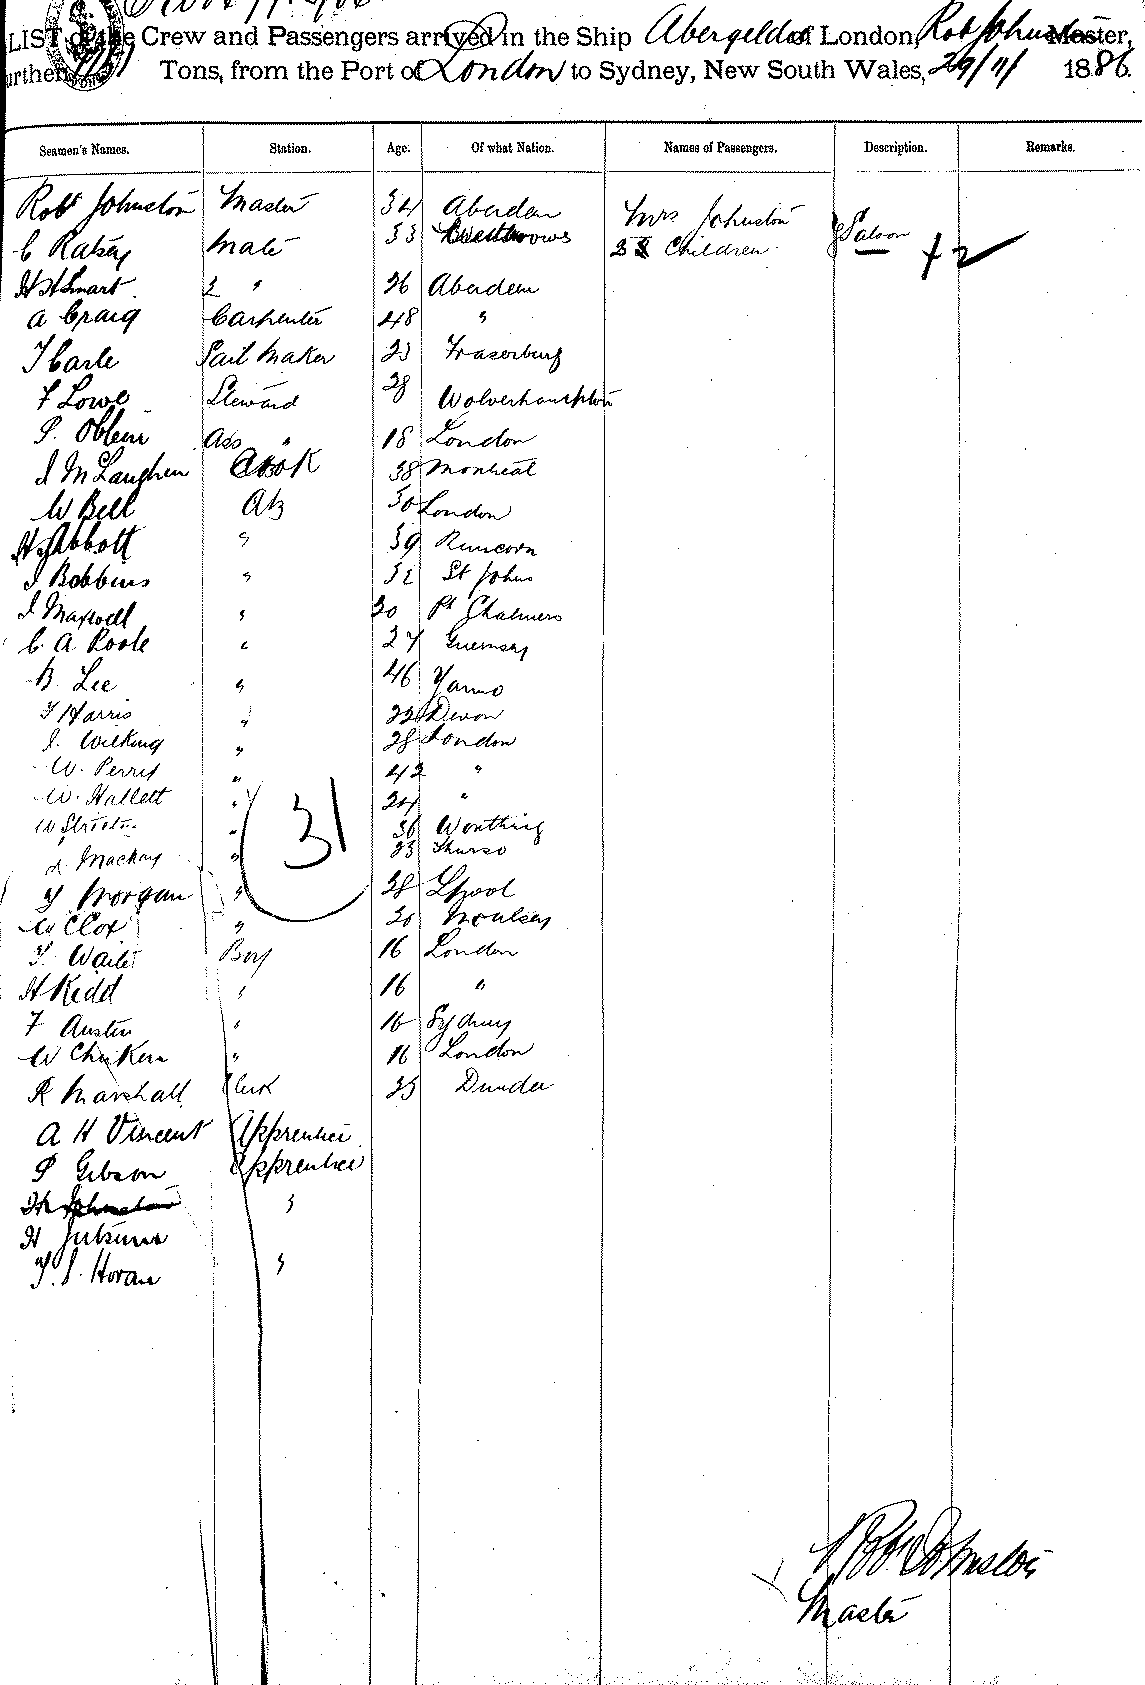 LIST of the Crew and Passengers arrived in the Ship Abergeldie of London, Robt Johnston Master,
Burthen Tons, from the Port of London to Sydney, New South Wales, 29/11/ 1886.
Seamen's Names. Station. Age. Of what Nation. Names of Passengers. Description. Remarks.
Robt Johnston Master 34 Aberdeen Mrs Johnston Saloon
C Ratsey Mate 33 Children + 2
H H Smart 2 " 26 Aberdeen
A Craig Carpenter 48 "
J Carle Sail Maker 23 Fraserburg
F Lowe Steward 28 Wolverhampton
P. Ass " 18 London
J McLaughen Cook 38 Montreal
W Bell Ab 30 London
H Abbott " 39 Runcorn
J Bobbins " 32 St Johns
J Maxwell " 30 Pt Chalmers
C. A Poole " 27 Guernsey
B Lee " 46
T Harris " 22 Devon
J. Wilking " 28 London
W. Perry " 42 "
W. Hallett " 24 "
W " 36 Worthing
Mackay " 23 Thurso
31
T Morgan " 28 Lpool
W Clox " 20
T. Waite Boy 16 London
H Kidd " 16 "
F Austin " 16 Sydney
W Chicken " 16 London
R Marshall Clerk 35 Dundee
A H Vincent Apprentice
P Gibson Apprentice
Johnston "
H
T. J. Horan "
Robt Johnston
Master